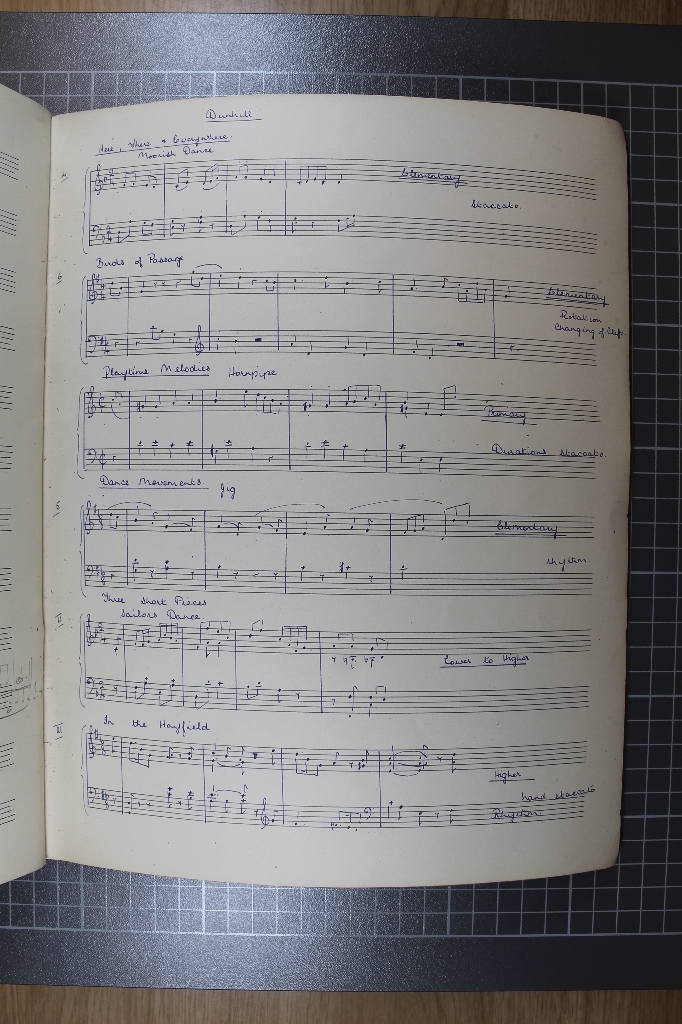 Dunhill
Here, There & Everywhere.
Moorish Dance
4
Elementary
staccato.
Birds of Passage
6
Elementary
Rotation
Changing of Clefs.
Playtime Melodies Hornpipe
Primary
Durations staccato.
Dance Movements. Jig
5
Elementary
rhythm.
Three Short Pieces
Sailors Dance
II
Lower to Higher
In the Hayfield
III
Higher
hand staccato
Rhythm.